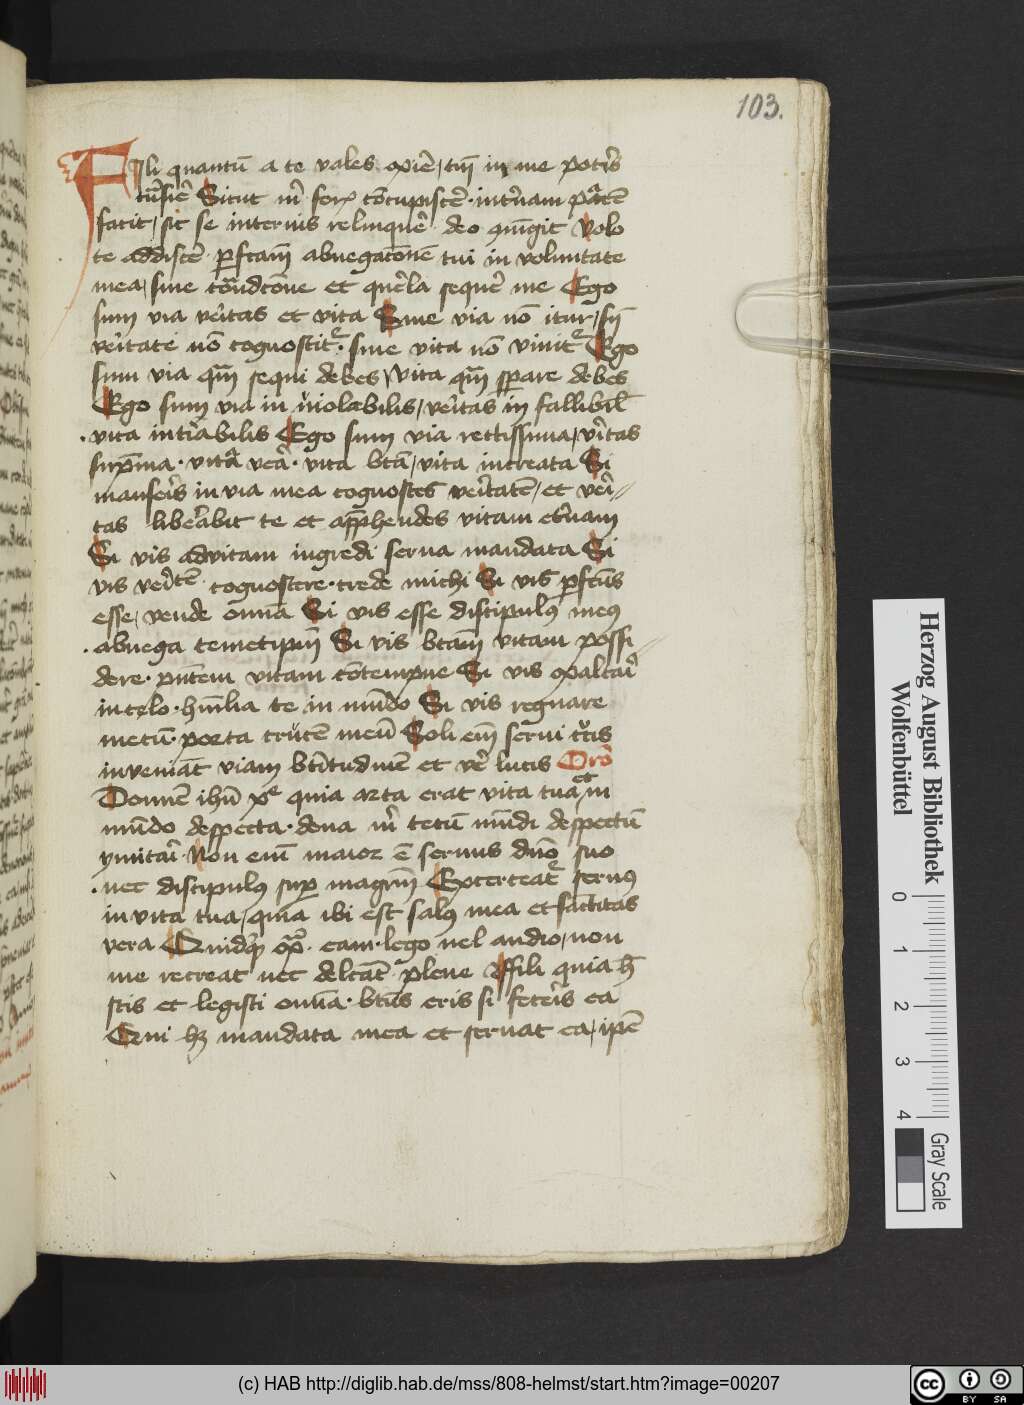 103.
Fili quantū a te vales exiē, tm̄ in me poter̄
tn̄sire Sicut nl̄ for̄ cōcupiscē · intn̄am pacē
facit, sic se internis relinquē deo ꝯiūgit Volo
te addiscē ꝑfc̄am abnegacōnē tui in voluntate
mea, sine cōtͣdcōne et querela sequē me Ego
sum via veritas et vita Sine via nō itur, sn̄
veritate nō cognoscitur · sine vita nō vivitur Ego
sum via qm̄ sequi debes, vita qm̄ sperare debes
Ego sum via in violabilis, veritas in fallibil̄
vita intm̄abilis Ego sum via rectissima, veritas
sup̄ma · vita vera · vita bt̄a, vita increata Si
manseris in via mea cognosces veritatē, et veri
tas liberabit te et app̄hendes vitam et̄nam
Si vis advitam ingredi serva mandata Si
vis veritatē cognoscere · crede michi Si vis ꝑfc̄us
esse, vende omnia Si vis esse discipulꝰ meꝰ
abnega temetipm̄ Si vis bt̄am vitam possi
dere · pn̄tem vitam cōtempne Si vis exaltari
in celo · humilia te in mūdo Si vis regnare
mecū · porta crucē meā Soli em̄ servi crucis
inveniāt viam bt̄itudinē et ver̄ lucis Orō
Domine ihū xp̄e quia arta erat vita tua et in
mūdo despecta · dona m̄ tecū mūdi despectū
ymitari · Non em̄ maior ē servus dn̄o suo
nec discipulꝰ sup magr̄m Exerceatur servꝰ
in vita tua, quia ibi est salꝰ mea et sāctitas
vera Quidqͥd extͣ eam · lego vel audio, non
me recreat nec delc̄at plene Fili quia h̄
scis et legisti omnia · bt̄us eris si feceris ea
Qui hꝫ mandata mea et servat ea, ipē
Herzog August Bibliothek
Wolfenbüttel
0 1 2 3 4
Gray Scale
(c) HAB http://diglib.hab.de/mss/808-helmst/start.htm?image=00207
cc BY SA